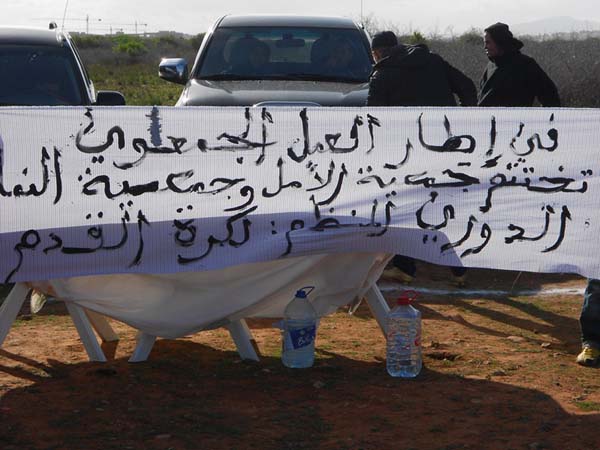 في إطار العمل الجمعوي
تختتم جمعية الأمل وجمعية
الدوري المنظم: لكرة القدم